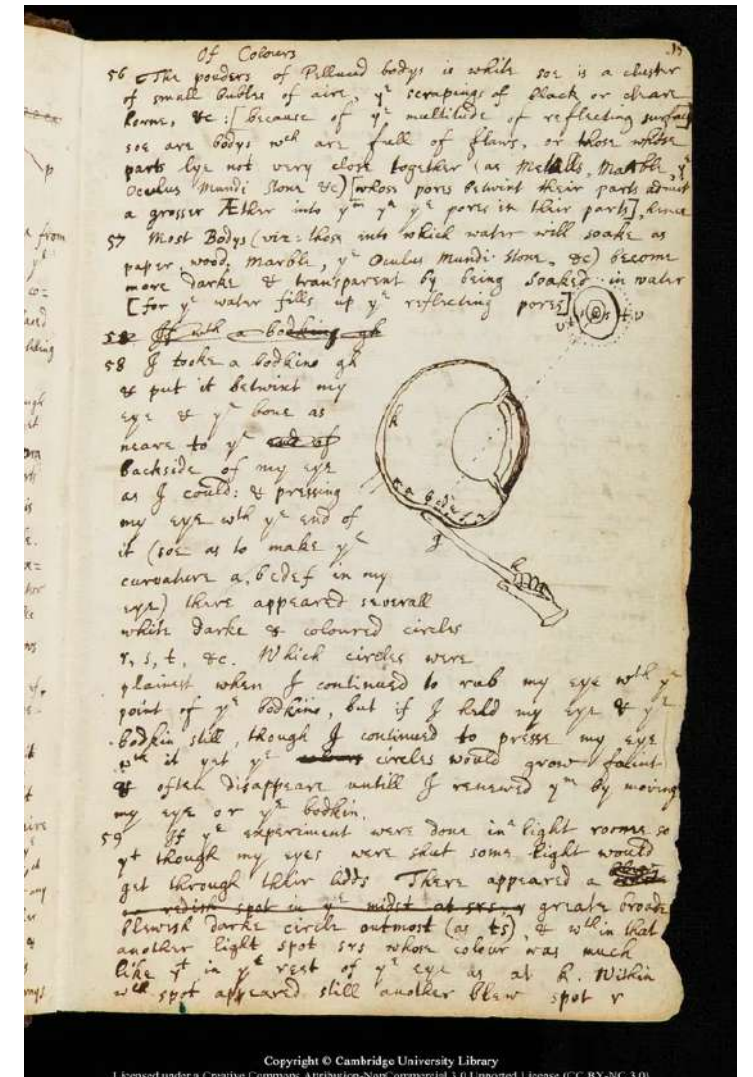 Of Colours
15
56 The pouders of Pellucid bodys is white soe is a cluster
of small bubles of aire, yᵉ scrapings of black or cleare
horne, &c: [because of yᵉ multitude of reflecting surfac
soe are bodys wᶜʰ are full of flaws, or those whose
parts lye not very close together (as Metalls, Marble, yᵉ
Oculus Mundi Stone &c) [whose pores betwixt their parts admit
a grosser Æther into yᵐ yⁿ yᵉ pores in their parts], hence
57 Most Bodys (viz: those into which water will soake as
paper, wood, marble, yᵉ Oculus Mundi Stone, &c) become
more darke & transparent by being soaked in water
[for yᵉ water fills up yᵉ reflecting pores]
58 If wᵗʰ a bodking gh
58 I tooke a bodkine gh
& put it betwixt my
eye & yᵉ bone as
neare to yᵉ end of
backside of my eye
as I could: & pressing
my eye wᵗʰ yᵉ end of
it (soe as to make yᵉ
curvature a, bcdef in my
eye) there appeared severall
white darke & coloured circles
r, s, t, &c. Which circles were
plainest when I continued to rub my eye wᵗʰ yᵉ
point of yᵉ bodkine, but if I held my eye & yᵉ
bodkin still, though I continued to presse my eye
wᵗʰ it yet yᵉ colours circles would grow faint
& often disappeare untill I renewed yᵐ by moving
my eye or yᵉ bodkin.
59 If yᵉ experiment were done in a light roome so
yᵗ though my eyes were shut some light would
get through their lidds There appeared a
redish spot in yᵉ midst at srs, greate broade
blewish darke circle outmost (as ts), & wᵗʰin that
another light spot srs whose colour was much
like yᵗ in yᵉ rest of yᵉ eye as at k. Within
wᶜʰ spot appeared still another blew spot r
k
g
h
Copyright © Cambridge University Library
Licensed under a Creative Commons Attribution-NonCommercial 3.0 Unported License (CC BY-NC 3.0)